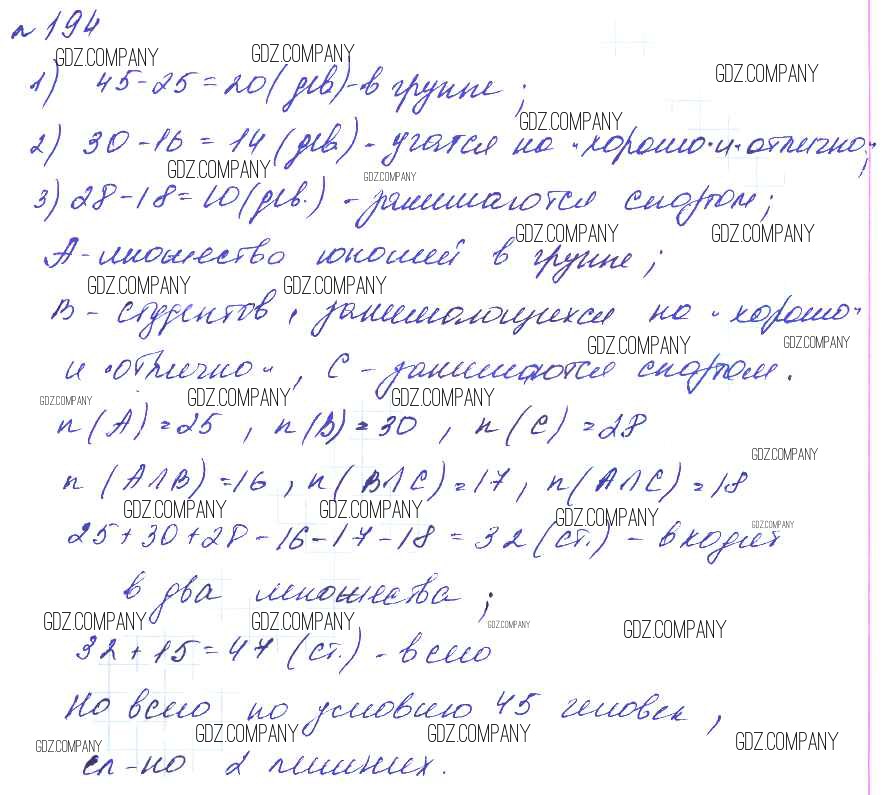 № 194
GDZ.COMPANY GDZ.COMPANY GDZ.COMPANY
1) 45-25=20(дев)-в группе;
GDZ.COMPANY
2) 30-16=14(дев)-учатся на "хорошо" и "отлично;"
GDZ.COMPANY GDZ.COMPANY
3) 28-18=10(дев.)-занимаются спортом;
GDZ.COMPANY GDZ.COMPANY
А-множество юношей в группе;
GDZ.COMPANY GDZ.COMPANY
В-студентов, занимающихся на "хорошо"
GDZ.COMPANY GDZ.COMPANY
и "отлично", С-занимаются спортом.
GDZ.COMPANY GDZ.COMPANY GDZ.COMPANY
n(A)=25, n(B)=30, n(C)=28
GDZ.COMPANY
n(A∩B)=16, n(B∩C)=17, n(A∩C)=18
GDZ.COMPANY GDZ.COMPANY GDZ.COMPANY GDZ.COMPANY
25+30+28-16-17-18=32(ст.)-входит
в два множества;
GDZ.COMPANY GDZ.COMPANY GDZ.COMPANY GDZ.COMPANY
32+15=47(ст.)-всего
Но всего по условию 45 человек,
GDZ.COMPANY GDZ.COMPANY GDZ.COMPANY GDZ.COMPANY
сл-но 2 лишних.